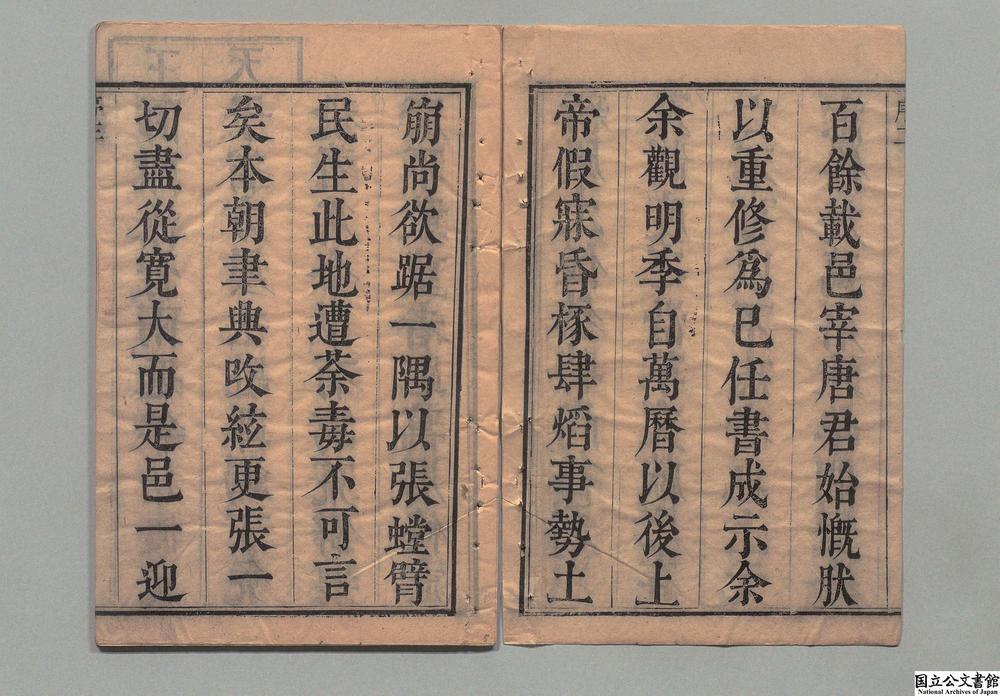 百餘載邑宰唐君始慨肰
以重修爲已任書成示余
余觀明季自萬曆以後上
帝假寐昏椓肆熖事勢土
崩尚欲踞一隅以張螳臂
民生此地遭荼毒不可言
矣本朝聿典攺絃更張一
切盡從寛大而是邑一迎
国立公文書館
National Archives of Japan